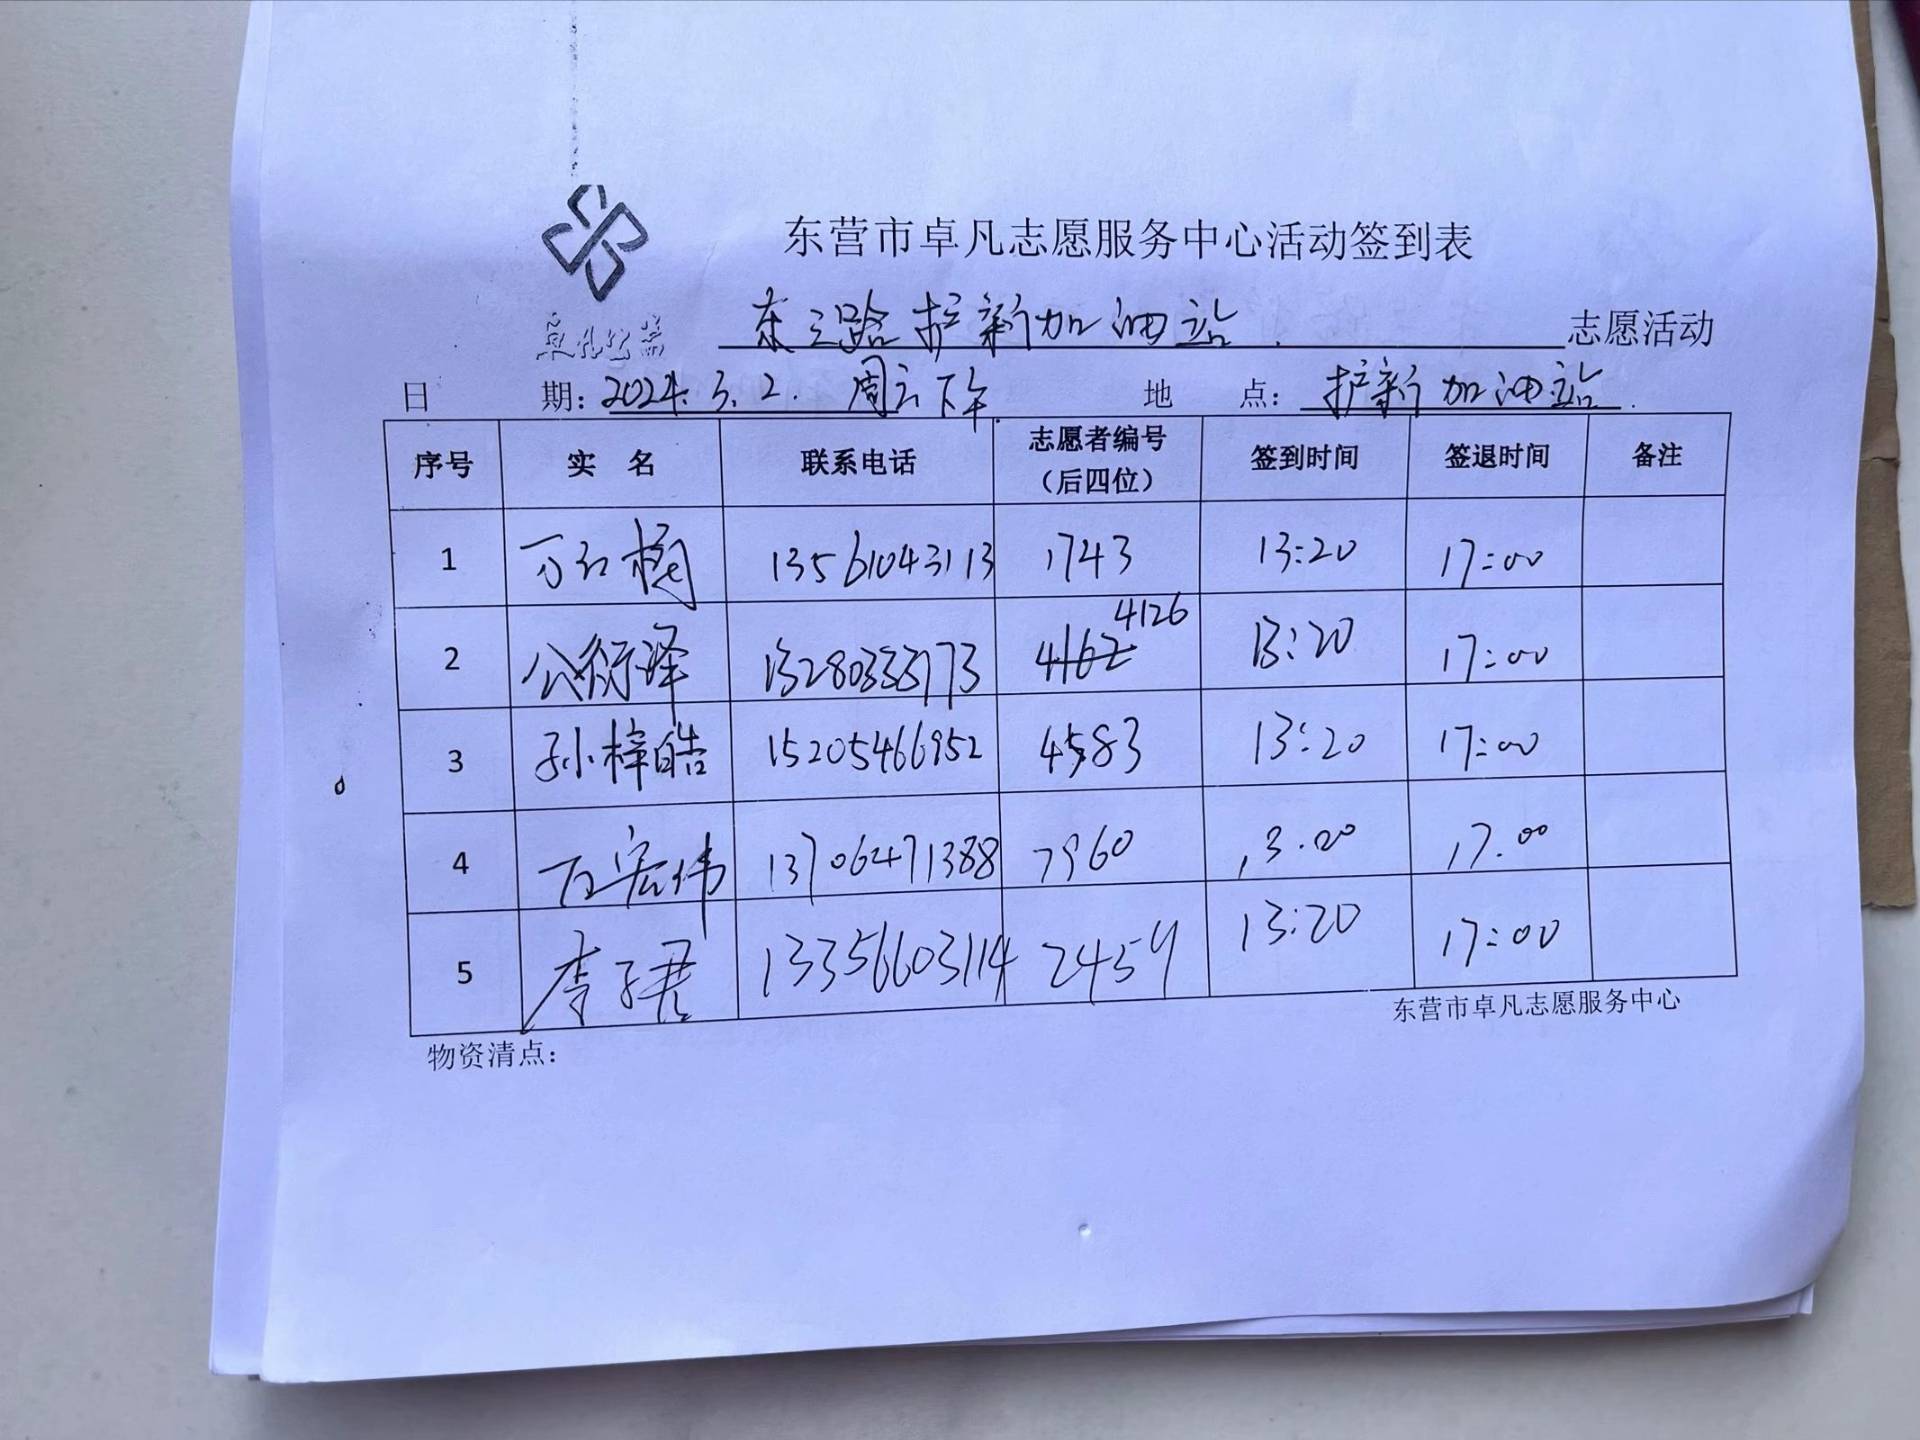 东营市卓凡志愿服务中心活动签到表
卓凡公益
东三路护新加油站 志愿活动
日 期：2024.3.2. 周六下午 地 点：护新加油站.
序号 实 名 联系电话 志愿者编号（后四位） 签到时间 签退时间 备注
1 万红梅 13561043113 1743 13:20 17:00
2 公衍泽 13280333773 4162 4126 13:20 17:00
3 孙梓皓 15205466952 4583 13:20 17:00
4 宏伟 13706471388 7960 13.20 17.00
5 李子君 13356603114 2459 13:20 17:00
东营市卓凡志愿服务中心
物资清点：